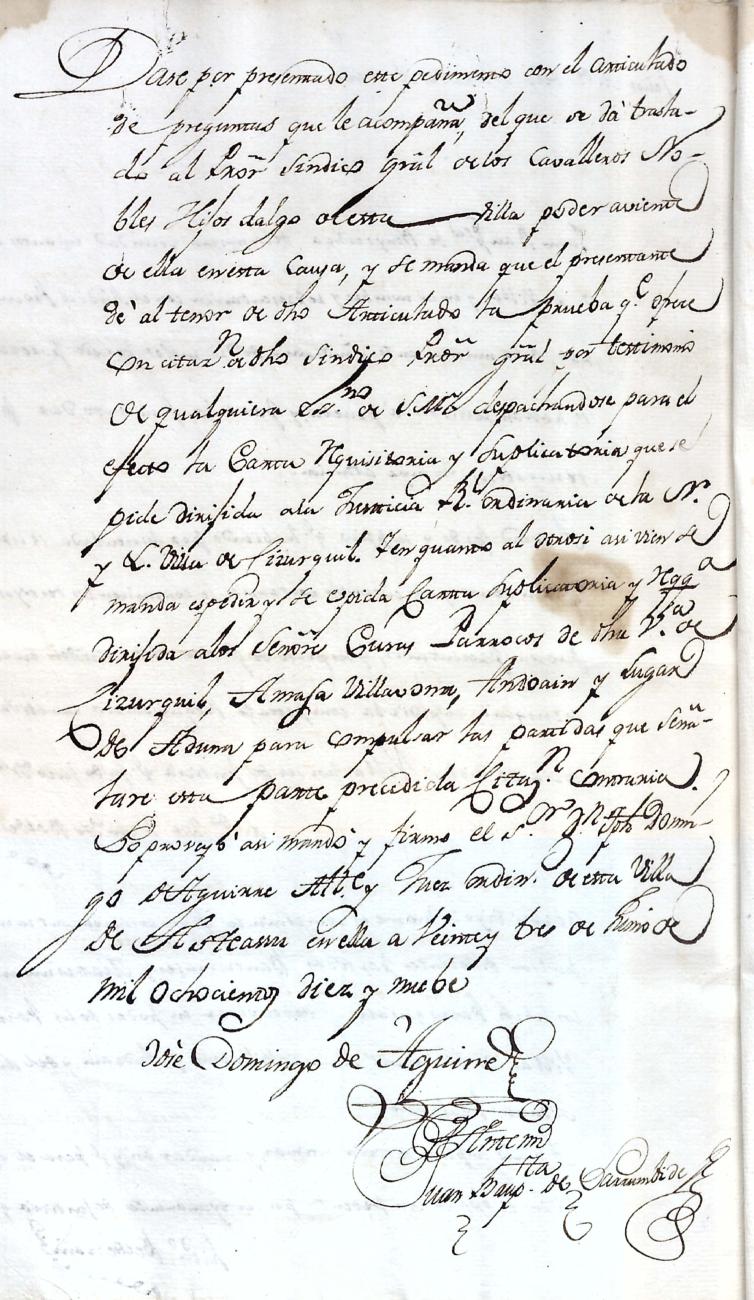 Dase por presentado este pedimento con el articulado
de preguntas que le acompaña, del que se dà trasla-
do al Prõr Sindico grãl de los Cavalleros No-
bles Hijos dalgo de esta Villa poder aviente
de ella en esta Causa, y se manda que el presentante
dè al tenor de dho Articulado la prueba q.e ofrece
con citaz.n de dho Sindico Prõr grãl por testimonio
de qualquiera Es.no de S.M. despachandose para el
efecto la Carta requisitoria y suplicatoria que se
pide dirijida a la Justicia R.l ordinaria de la N.
y L. Villa de Cizurquil. Y en quanto al otrosi asi vien se
manda espedir y se espida Carta suplicatoria y
dirijida a los Señores Curas Parrocos de dha V.a de
Cizurquil, Amasa Villavona, Andoain y Lugar
de Aduna para compulsar las partidas que seña-
lare esta parte precedida Citaz.n contraria.
Lo proveyò asi mandò y firmo el S.or D.n Jph Domin-
go de Aguirre Alc.e y Juez ordin.o de esta Villa
de Asteasu en ella a Veinte y tres de Junio de
mil ochocientos diez y nuebe
Josè Domingo de Aguirre
Ante mi
Juan Baup.ta de Larrumbide